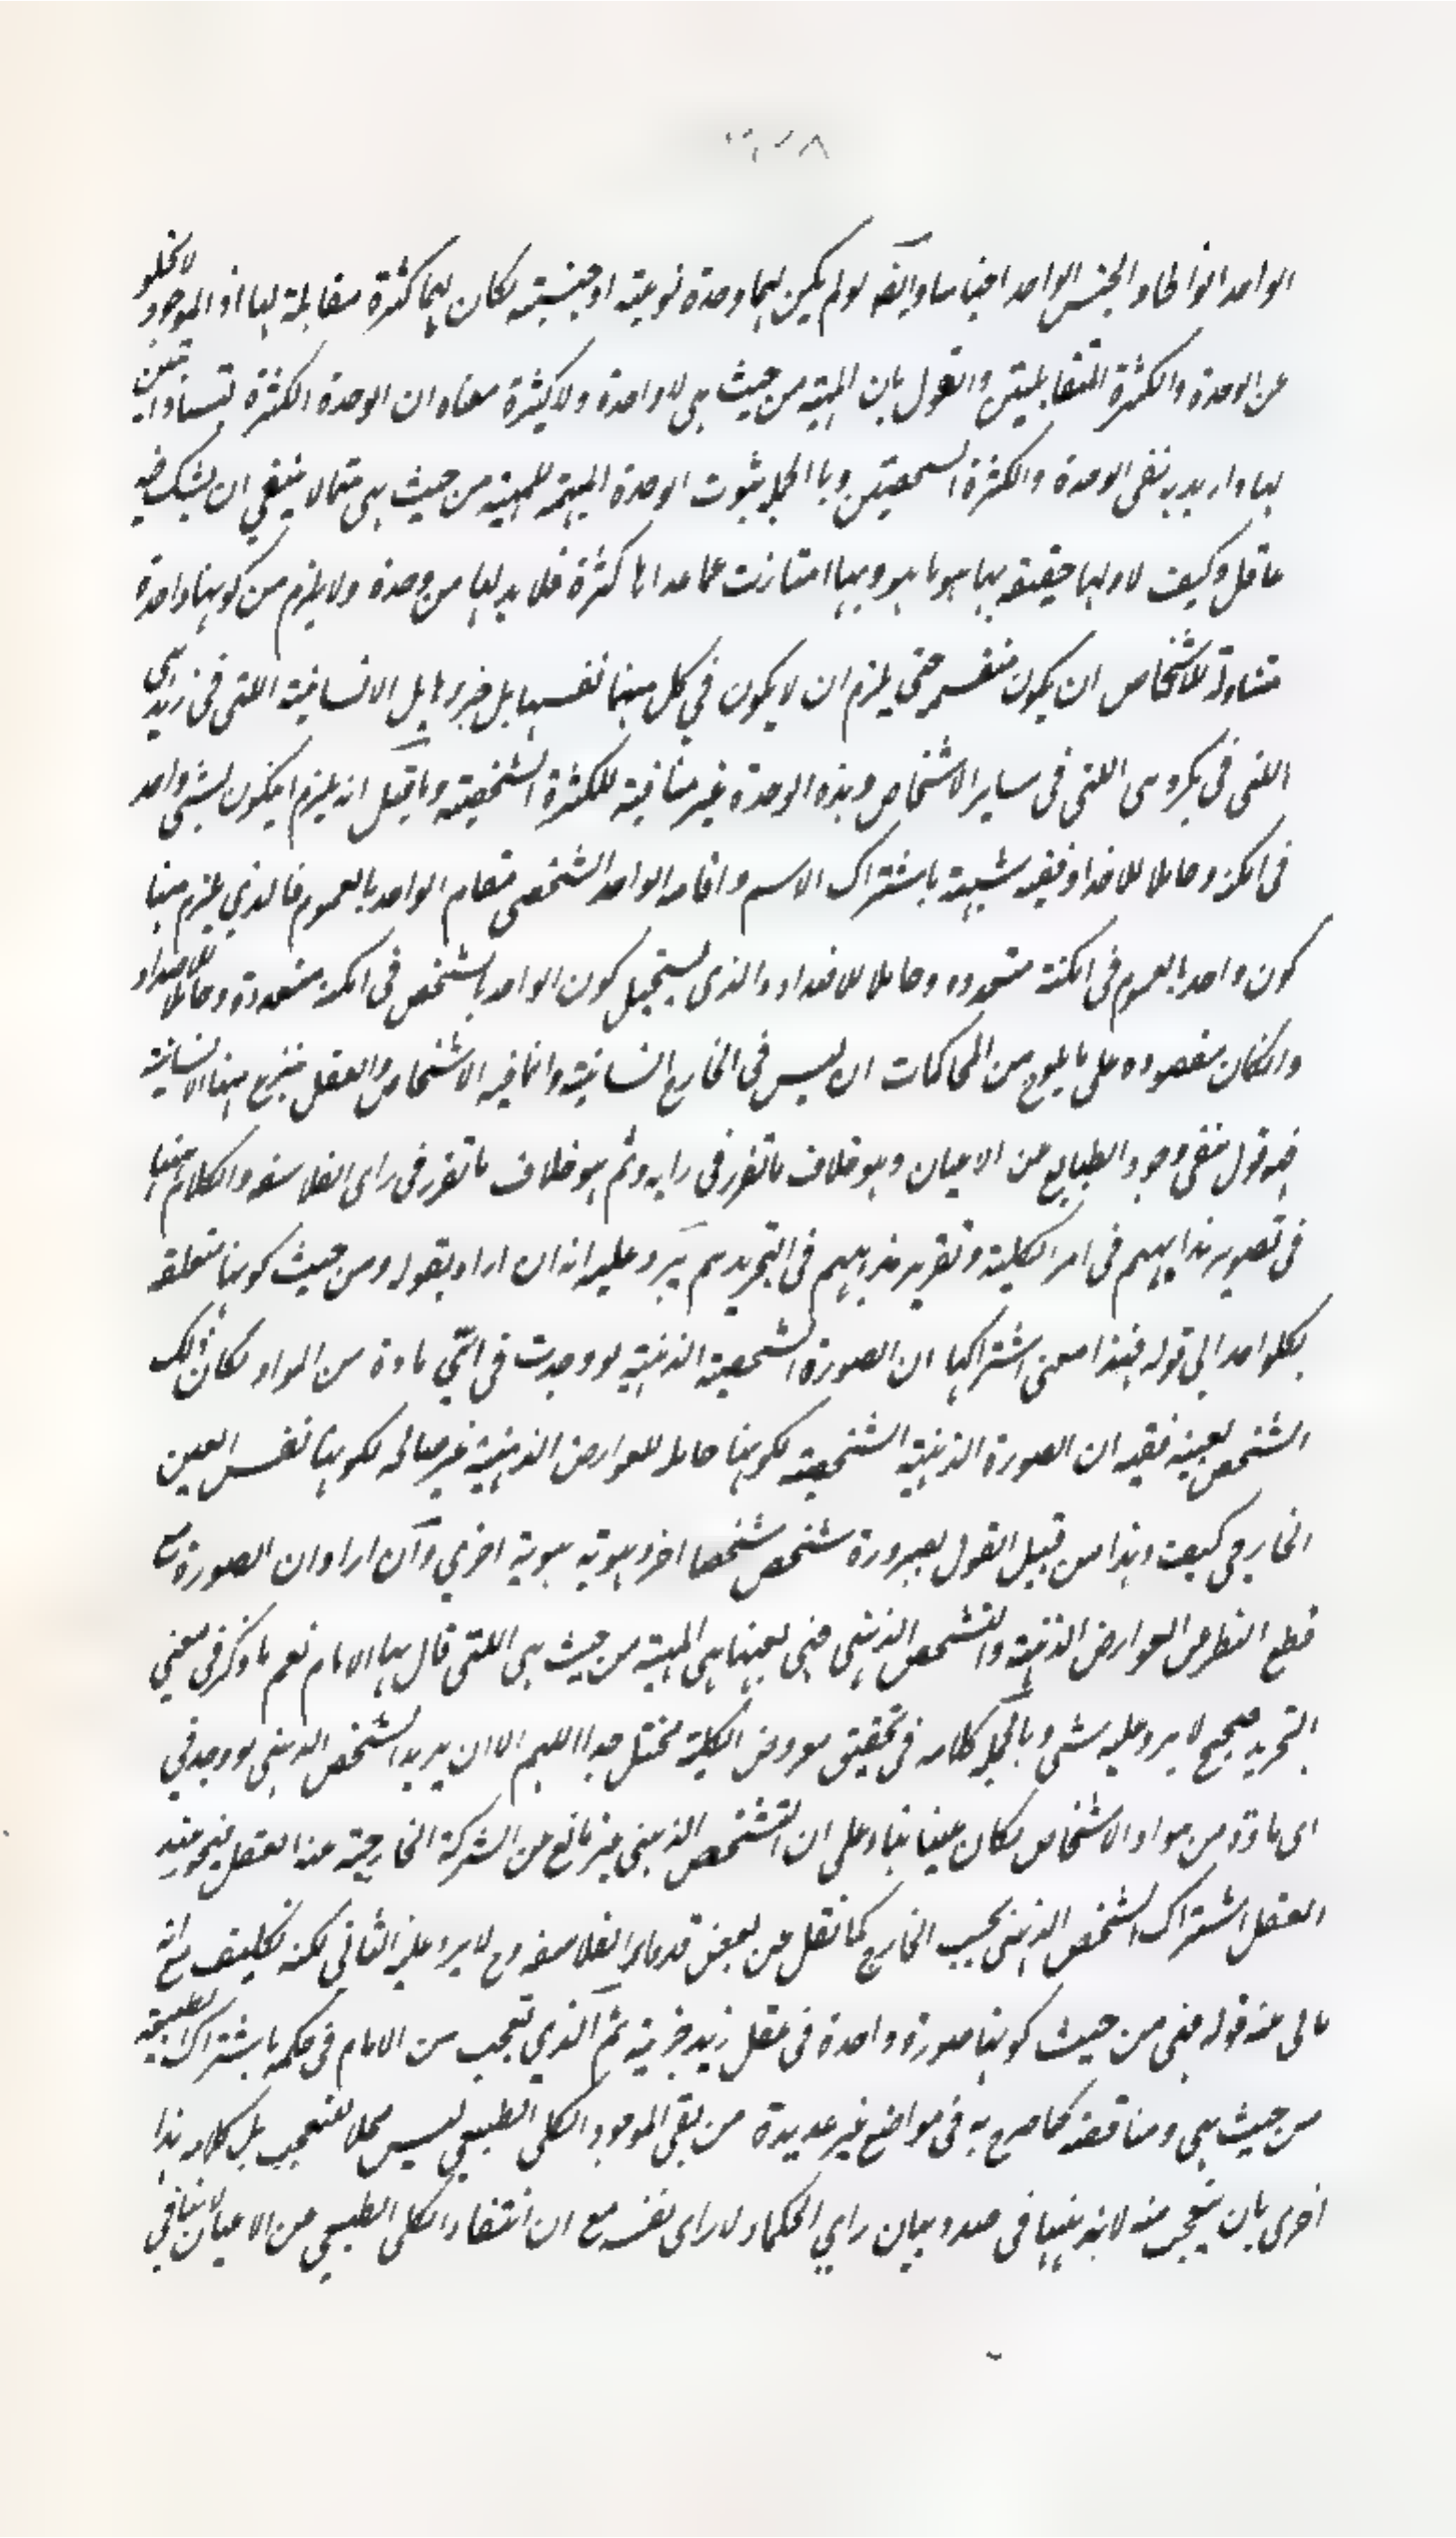 الواحد انواعا والجنس الواحد اجناسا وايضا لو لم يكن لها وحدة نوعية او جنسية لكان لها كثرة مقابلة لها اذ الموجود لا يخلو
عن الوحدة والكثرة المتقابلتين والقول بان المهية من حيث هى لا واحدة ولا كثيرة معناه ان الوحدة الكثرة ليستا ذاتيتين
لها واريد به نفى الوحدة والكثرة الشخصيتين وبالجملة ثبوت الوحدة المبهمة للمهية من حيث هى مما لا ينبغي ان يشك فيه
عاقل وكيف لا ولها حقيقة بها هو ما هو وبها امتازت عما عداها كثرة فلا بد لها من وحدة ولا يلزم من كونها واحدة
متناولة للاشخاص ان يكون حتى يلزم ان لا يكون في كل منها نفسها بل جزوها بل الانسانية اللتى فى زيد هى
اللتى فى بكر وهى اللتى فى ساير الاشخاص وهذه الوحدة غير منافية للكثرة الشخصية وما قيل انه يلزم ان يكون لشئ واحد
فى امكنة وحاملا للاضداد ففيه شبهة باشتراك الاسم واقامة الواحد الشخصى مقام الواحد بالعموم فالذي يلزم منها
كون واحد بالعموم فى امكنة متعددة وحاملا للاضداد والذى يستحيل كون الواحد بالشخص فى امكنة متعددة وحاملا للاضداد
وان كان مقصوده على ما يلوح من المحاكمات ان ليس فى الخارج انسانية وانما فيه الاشخاص والعقل ينتزع منها الانسانية
فهو قول بنفى وجود الطبايع عن الاعيان وهو خلاف ما تقرر فى رايه وثم هو خلاف ما تقرر فى راى الفلاسفة والكلام ههنا
فى تصوير مذاهبهم فى امر الكلية وتقرير مذهبهم فى التجريد ثم يرد عليه انه ان اراد بقوله ومن حيث كونها متعلقة
بكل واحد الى قوله فهذا معنى اشتراكها ان الصورة الشخصية الذهنية لو وجدت فى اي مادة من المواد لكان ذلك
الشخص بعينه ففيه ان الصورة الذهنية الشخصية لكونها حاملة للعوارض الذهنية غير صالحة لكونها نفس العين
الخارجى كيف وهذا من قبيل القول بصيرورة شخص شخصا اخر وهوية هوية اخري وان اراد ان الصورة مع
قطع النظر عن العوارض الذهنية والتشخص الذهنى فهى بعينها هى المهية من حيث هى اللتى قال بها الامام نعم ما ذكر فى معنى
التجريد صحيح لا يرد عليه شئ وبالجملة كلامه فى تحقيق معروض الكلية مختل جدا اللهم الا ان يريد الشخص الذهنى لو وجد فى
اى مادة من مواد الاشخاص لكان عينها بناء على ان التشخص الذهنى غير مانع عن الشركة الخارجية عند العقل
العقل اشتراك الشخص الذهنى بحسب الخارج كما نقل عن بعض قدماء الفلاسفة وح لا يرد عليه الثانى لكنه تكليف مع
عنه قوله فهى من حيث كونها صورة واحدة فى عقل زيد جزئية ثم الذي تعجب من الامام فى حكمه باشتراك الطبيعة
من حيث هى ومناقضة كما صرح به فى مواضع غير عديدة من بقى الموجود الكلى الطبيعى ليس محلا للتعجب بل كلامه هذا
احرى بان يتعجب منه لانه ههنا فى صدد بيان راي الحكماء لا راى نفسه مع ان انتفاء الكلى الطبيعى عن الاعيان لا ينافي